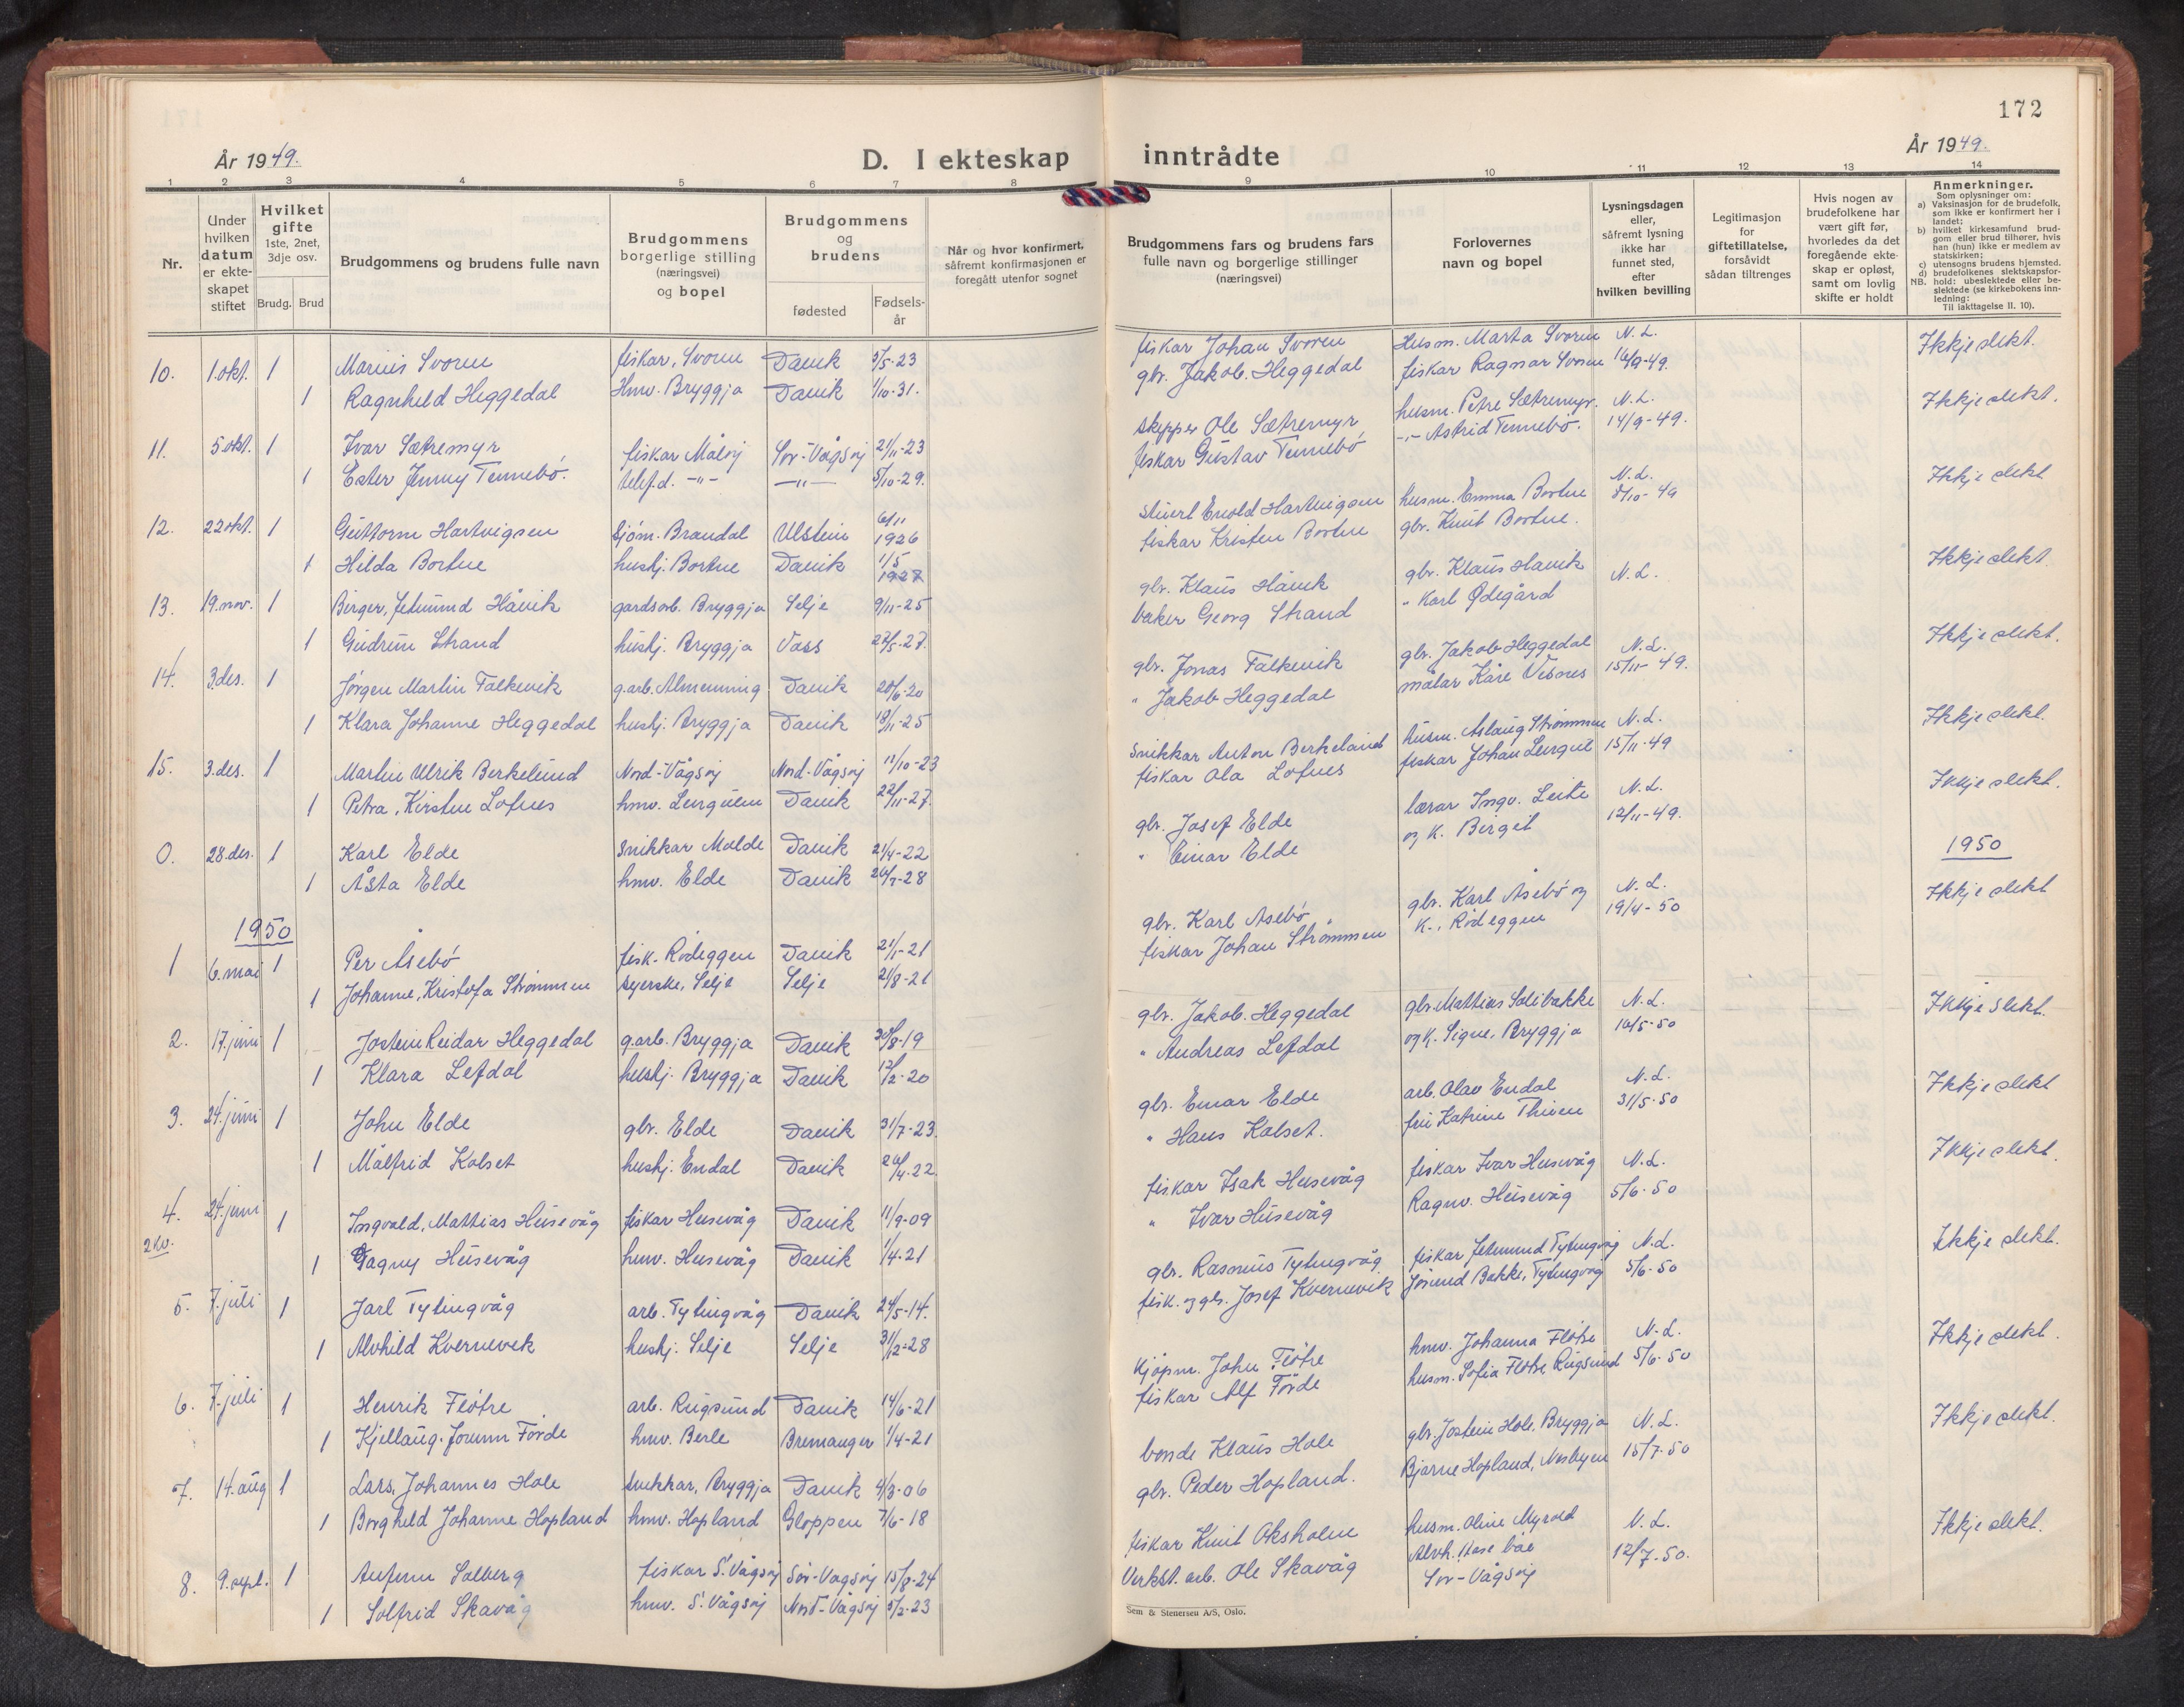 172
År 1949.
D. I ekteskap inntrådte
År 1949.
1 2 3 4 5 6 7 8 9 10 11 12 13 14
Nr.
Under hvilken datum er ekteskapet stiftet
Hvilket gifte 1ste, 2net, 3dje osv.
Brudg. Brud
Brudgommens og brudens fulle navn
Brudgommens borgerlige stilling (næringsvei) og bopel
Brudgommens og brudens
fødested
Fødselsår
Når og hvor konfirmert, såfremt konfirmasjonen er foregått utenfor sognet
Brudgommens fars og brudens fars fulle navn og borgerlige stillinger (næringsvei)
Forlovernes navn og bopel
Lysningsdagen eller, såfremt lysning ikke har funnet sted, efter hvilken bevilling
Legitimasjon for giftetillatelse, forsåvidt sådan tiltrenges
Hvis nogen av brudefolkene har vært gift før, hvorledes da det foregående ekteskap er opløst, samt om lovlig skifte er holdt
Anmerkninger.
Som oplysninger om:
a) Vaksinasjon for de brudefolk, som ikke er konfirmert her i landet;
b) hvilket kirkesamfund brudgom eller brud tilhører, hvis han (hun) ikke er medlem av statskirken;
c) utensogns brudens hjemsted.
d) brudefolkenes slektskapsforhold: ubeslektede eller beslektede (se kirkebokens innledning:
NB. Til iakttagelse II. 10).
10. 1.okt. 1 Marius Svoren fiskar, Svoren Davik 3/5-23 fiskar Johan Svoren Husm. Marta Svoren N.L. Ikkje slekt.
1 Ragnhild Heggedal Hmv. Bryggja Davik 1/10-31. gbr. Jakob Heggedal fiskar Ragnar Svoren 16/9-49.
11. 5.okt. 1 Ivar Sætremyr fiskar Måløy Sør-Vågsøy 21/11-23 skipper Ole Sætremyr husm. Petre Sætremyr. N.L. Ikkje slekt.
1 Ester Jenny Tennebø. telef.d. -"- -"- 5/10-29. fiskar Gustav Tennebø -"- Astrid Tennebø. 14/9-49.
12. 22okt. 1 Guttorm Hartvigsen sjøm. Brandal Ulstein 6/11 1926 stuert Enold Hartvigsen husm. Emma Bortne N.L. Ikkje slekt
1 Hilda Bortne hushj. Bortne Davik 1/5 1927 fiskar Kristen Bortne gbr. Knut Bortne. 8/10-49
13. 19.nov. 1 Birger, Jetmund Håvik gardsarb. Bryggja Selje 9/11-25 gbr. Klaus Håvik gbr. Klaus Håvik N.L. Ikkje slekt.
1 Gudrun Strand hushj. Bryggja Voss 27/5-27. baker Georg Strand " Karl Ødegård
14. 3.des. 1 Jørgen Martin Falkevik g.arb. Almenning Davik 20/6-20 gbr. Jonas Falkevik gbr. Jakob Heggedal N.L. Ikkje slekt.
1 Klara Johanne Heggedal hushj. Bryggja Davik 18/11-25 " Jakob Heggedal målar Kåre Visnes 15/11-49.
15. 3.des. 1 Martin Ulrik Berkelund Nord-Vågsøy Nord-Vågsøy 11/10-23 Snikkar Anton Berkeland husm. Aslaug Strømmen N.L. Ikkje slekt.
1 Petra, Kirsten Lofnes hmv. Leirgulen Davik 22/11-27. fiskar Ola Lofnes fiskar Johan Leirgul 15/11-49
0. 28.des. 1 Karl Elde Snikkar Molde Davik 21/4-22 gbr. Josef Elde lærar Ingv. Leite N.L. Ikkje slekt.
1 Åsta Elde hmv. Elde Davik 26/7-28 " Einar Elde og k. Birgit 12/11-49.
1950 1950
1 6.mai 1 Per Åsebø fisk. Rødeggen Davik 21/1-21 gbr. Karl Åsebø gbr. Karl Åsebø og N.L. Ikkje slekt
1 Johanne, Kristofa Strømmen syerske, Selje Selje 21/8-21 fiskar Johan Strømmen k., Rødeggen 19/4-50
2. 17.juni 1 Jostein Reidar Heggedal g.arb. Bryggja Davik 30/8-19 gbr. Jakob Heggedal gbr. Mattias Solibakke N.L. Ikkje slekt.
1 Klara Lefdal hushj. Bryggja Davik 12/2-20 " Andreas Lefdal og k. Signe, Bryggja 16/5-50
3. 24.juni 1 John Elde gbr. Elde Davik 31/7-23 gbr. Einar Elde arb. Olav Endal N.L. Ikkje slekt
1 Målfrid Kolset hushj. Endal Davik 26/4-22 " Hans Kolset. fru Katrine Thinn 31/5-50
4. 24.juni 1 Ingvald, Mattias Husevåg fiskar Husevåg Davik 11/9-09 fiskar Isak Husevåg fiskar Ivar Husevåg N.L. Ikkje slekt.
2 kv. 1 Dagny Husevåg hmv. Husevåg Davik 1/4-21 " Ivar Husevåg Ragnv. Husevåg 5/6-50
5. 7.juli 1 Jarl Tytingvåg arb. Tytingvåg Davik 24/5-14. gbr. Rasmus Tytingvåg fiskar Jetmund Tytingvåg N.L. Ikkje slekt.
1 Alvhild Kvernevik hushj. Selje Selje 31/12-28 fisk. og gbr. Josef Kvernevik Jørund Bakke, Tytingvåg 5/6-50
6. 7.juli 1 Henrik Fløtre arb. Rugsund Davik 14/6-21 Kjøpm. John Fløtre hmv. Johanna Fløtre N.L. Ikkje slekt.
1 Kjellaug Jorunn Førde hmv. Berle Bremanger 1/4-21 fiskar Alf Førde husm. Sofia Fløtre Rugsund 5/6-50
7. 14.aug 1 Lars, Johannes Hole snikkar, Bryggja Davik 4/3-06 bonde Klaus Hole gbr. Jostein Hole, Bryggja N.L. Ikkje slekt.
1 Borghild Johanne Hopland hmv. Hopland Gloppen 7/6-18 gbr. Peder Hopland. Bjarne Hopland, Nesbyen 15/7-50
8. 9.sept. 1 Solberg fiskar S. Vågsøy Sør-Vågsøy 15/8-24 fiskar Knut Oksholm husm. Oline Myrold N.L. Ikkje slekt.
1 Solfrid Skavåg hmv. S. Vågsøy Nord-Vågsøy 5/2-23 Verkst. arb. Ole Skavåg 12/7-50.
Sør-Vågsøy
Sem & Stenersen A/S, Oslo.